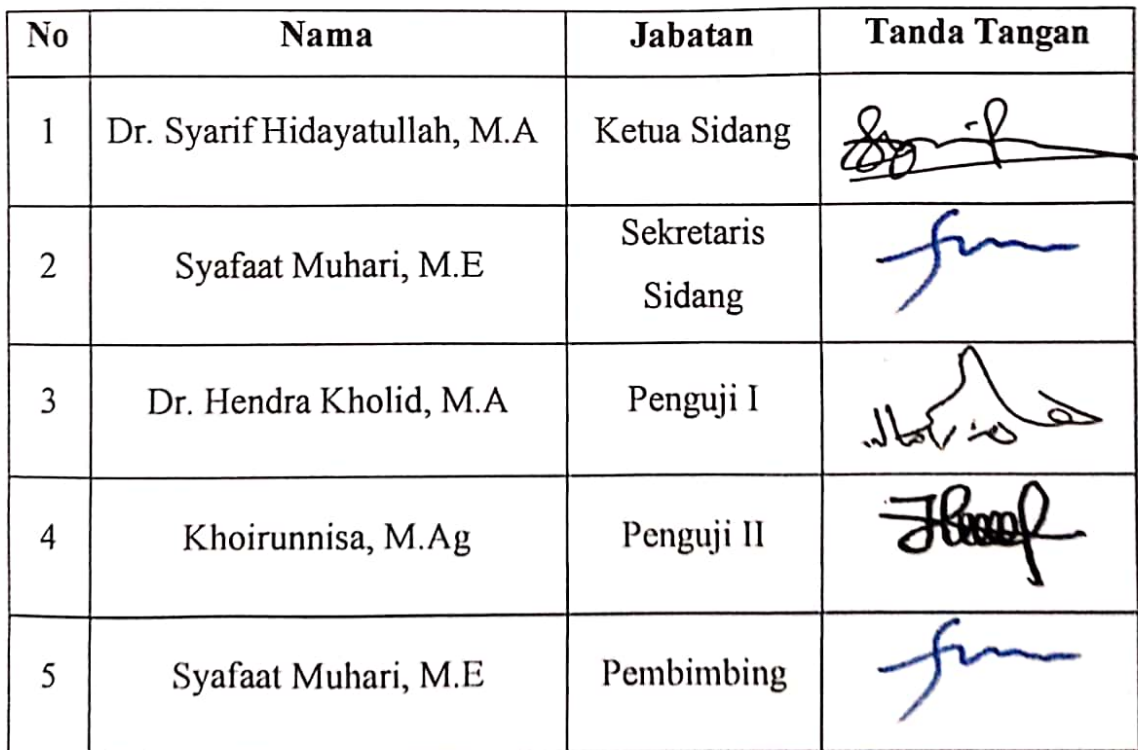 No Nama Jabatan Tanda Tangan
1 Dr. Syarif Hidayatullah, M.A Ketua Sidang
2 Syafaat Muhari, M.E Sekretaris
Sidang
3 Dr. Hendra Kholid, M.A Penguji I
4 Khoirunnisa, M.Ag Penguji II
5 Syafaat Muhari, M.E Pembimbing